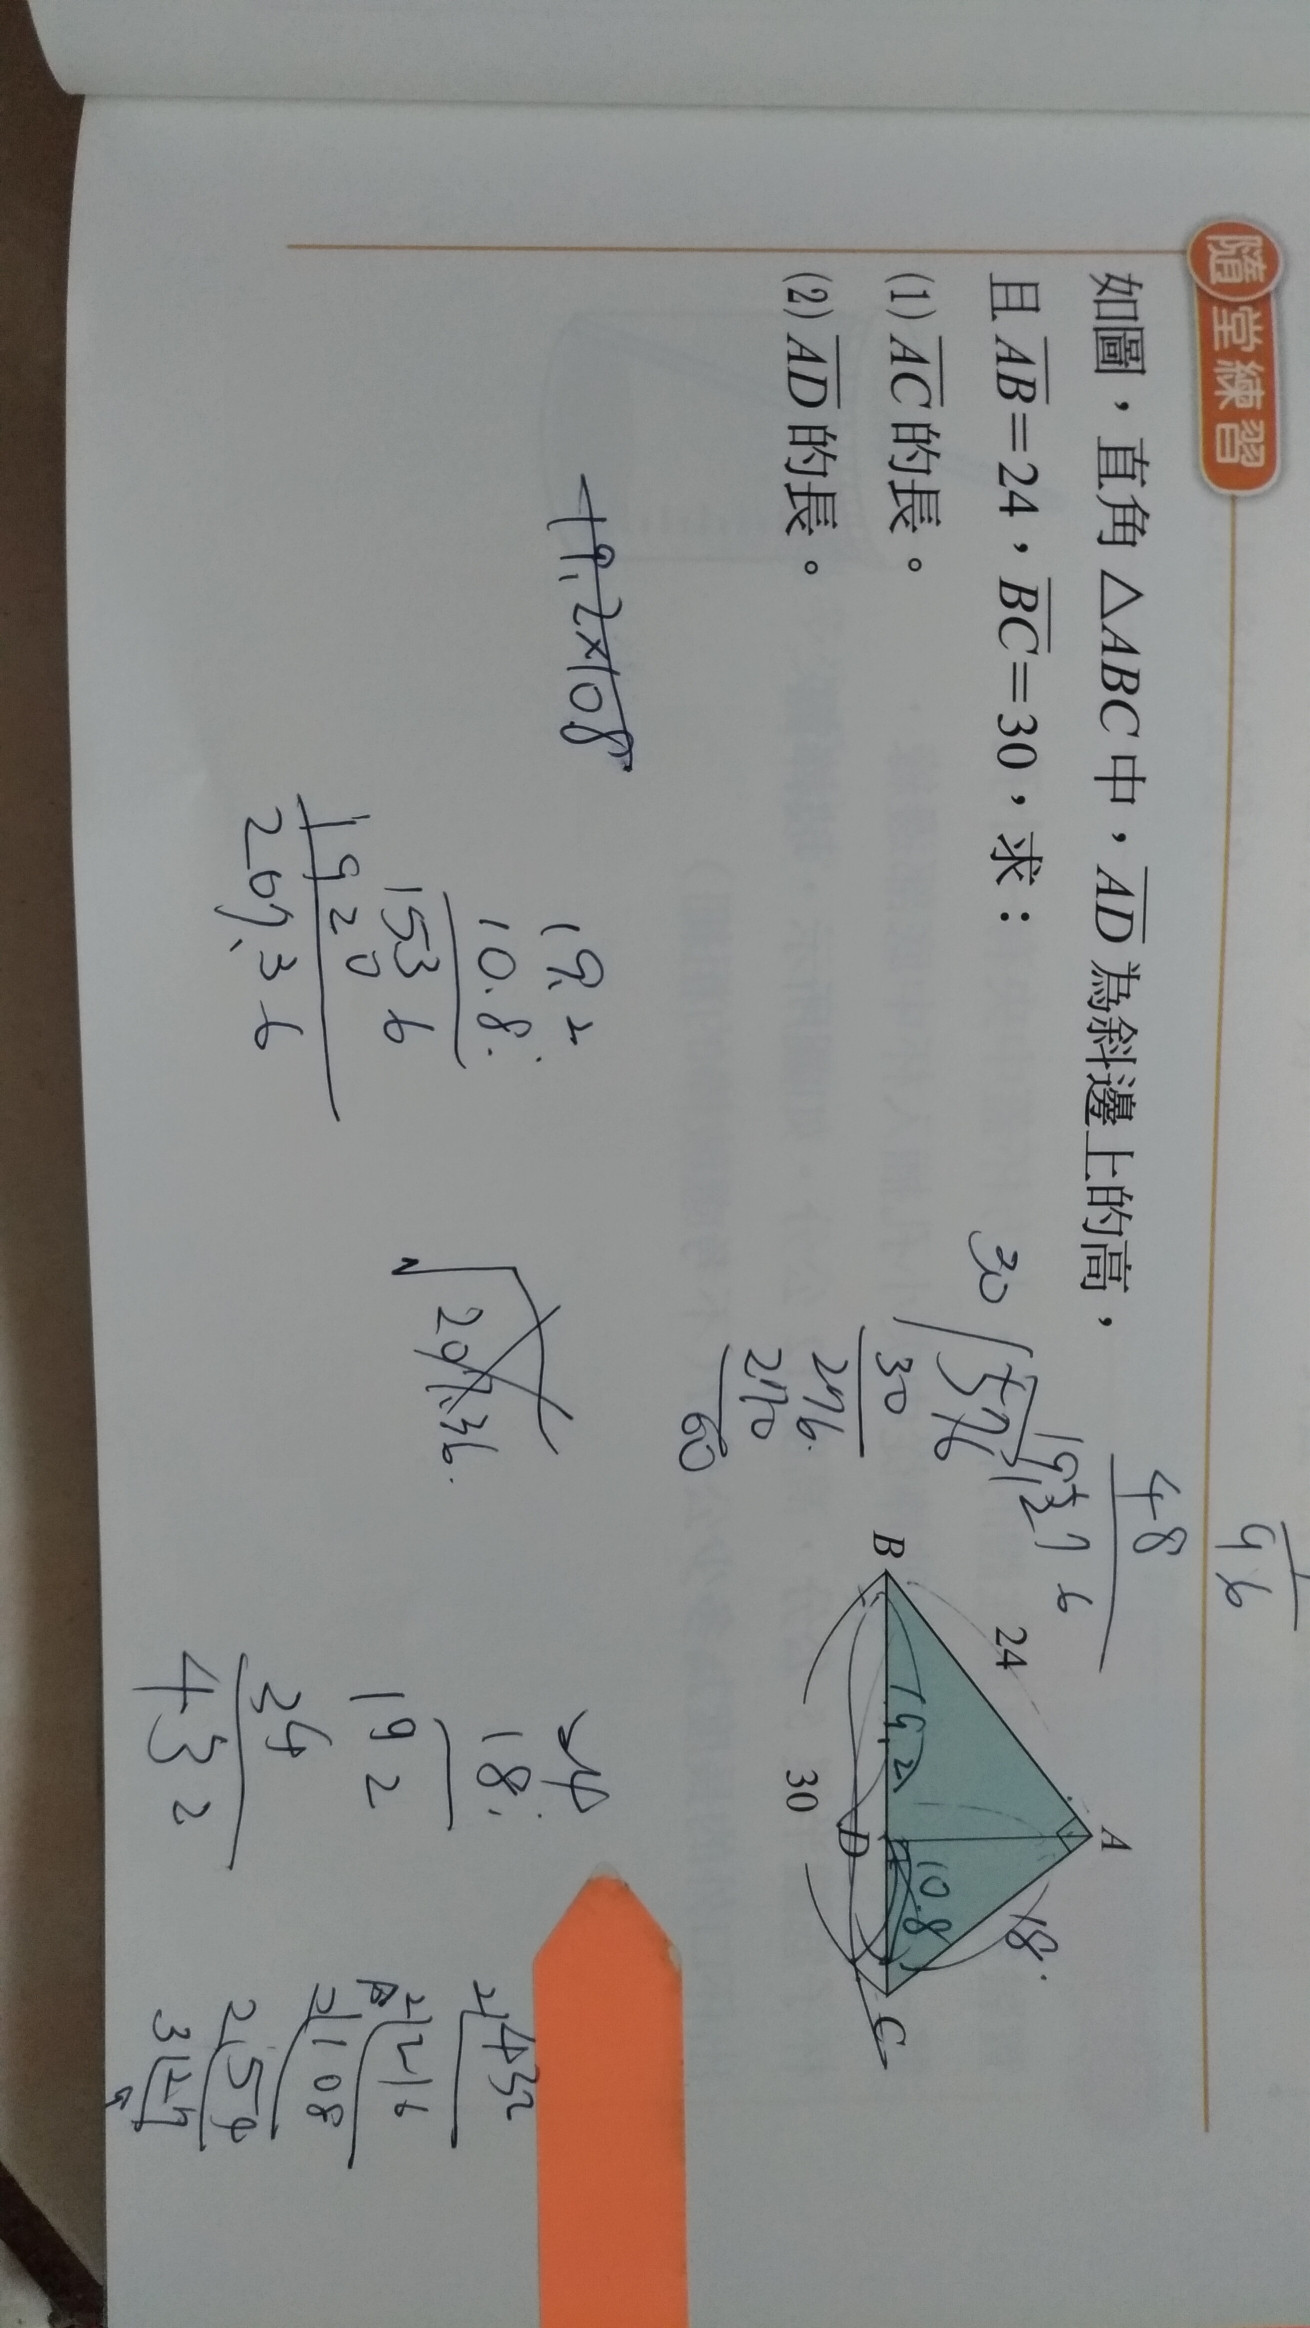 隨堂練習
如圖，直角 △ABC 中，AD 為斜邊上的高，
且 AB=24，BC=30，求：
(1) AC 的長。
(2) AD 的長。
A
B
C
D
24
30
18
19.2
10.8
96
48
576
30
576
30
276
270
60
19.2×10.8
19.2
10.8
1536
1920
207.36
√207.36
24
18
192
24
432
2 432
2 216
2 108
2 54
3 27
9